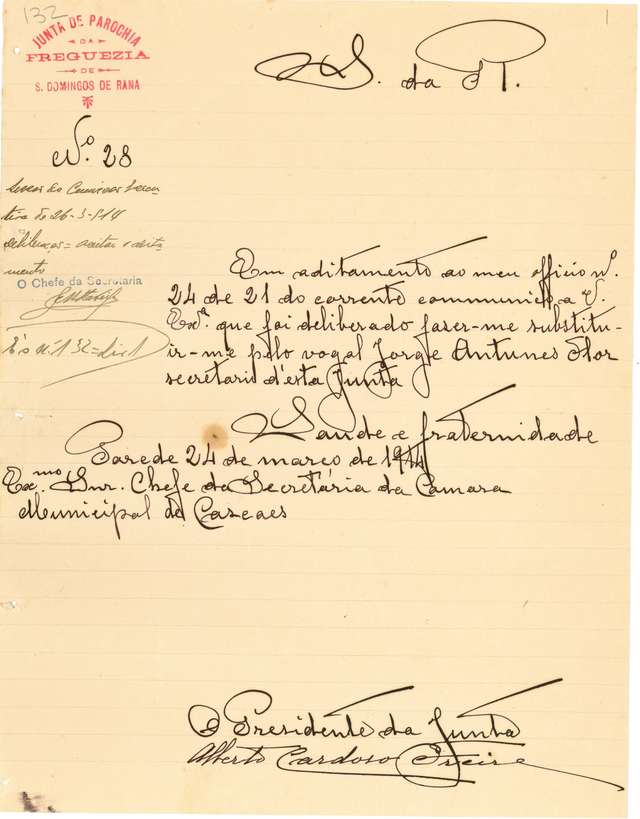 132
1
JUNTA DE PAROCHIA
DA
FREGUEZIA
DE
S. DOMINGOS DE RANA
S. da R.
Nº. 28
de 26-3-914
O Chefe da Secretaria
Em aditamento ao meu officio nº.
24 de 21 do corrente communico a V.
Exª. que foi deliberado faser-me substitu-
ir-me pelo vogal Jorge Antunes Flor
secretario d'esta Junta
Saude e fraternidade
Parede 24 de março de 1914
Exmo. Snr. Chefe da Secretária da Camara
Municipal de Cascaes
O Presidente da Junta
Alberto Cardoso Freire